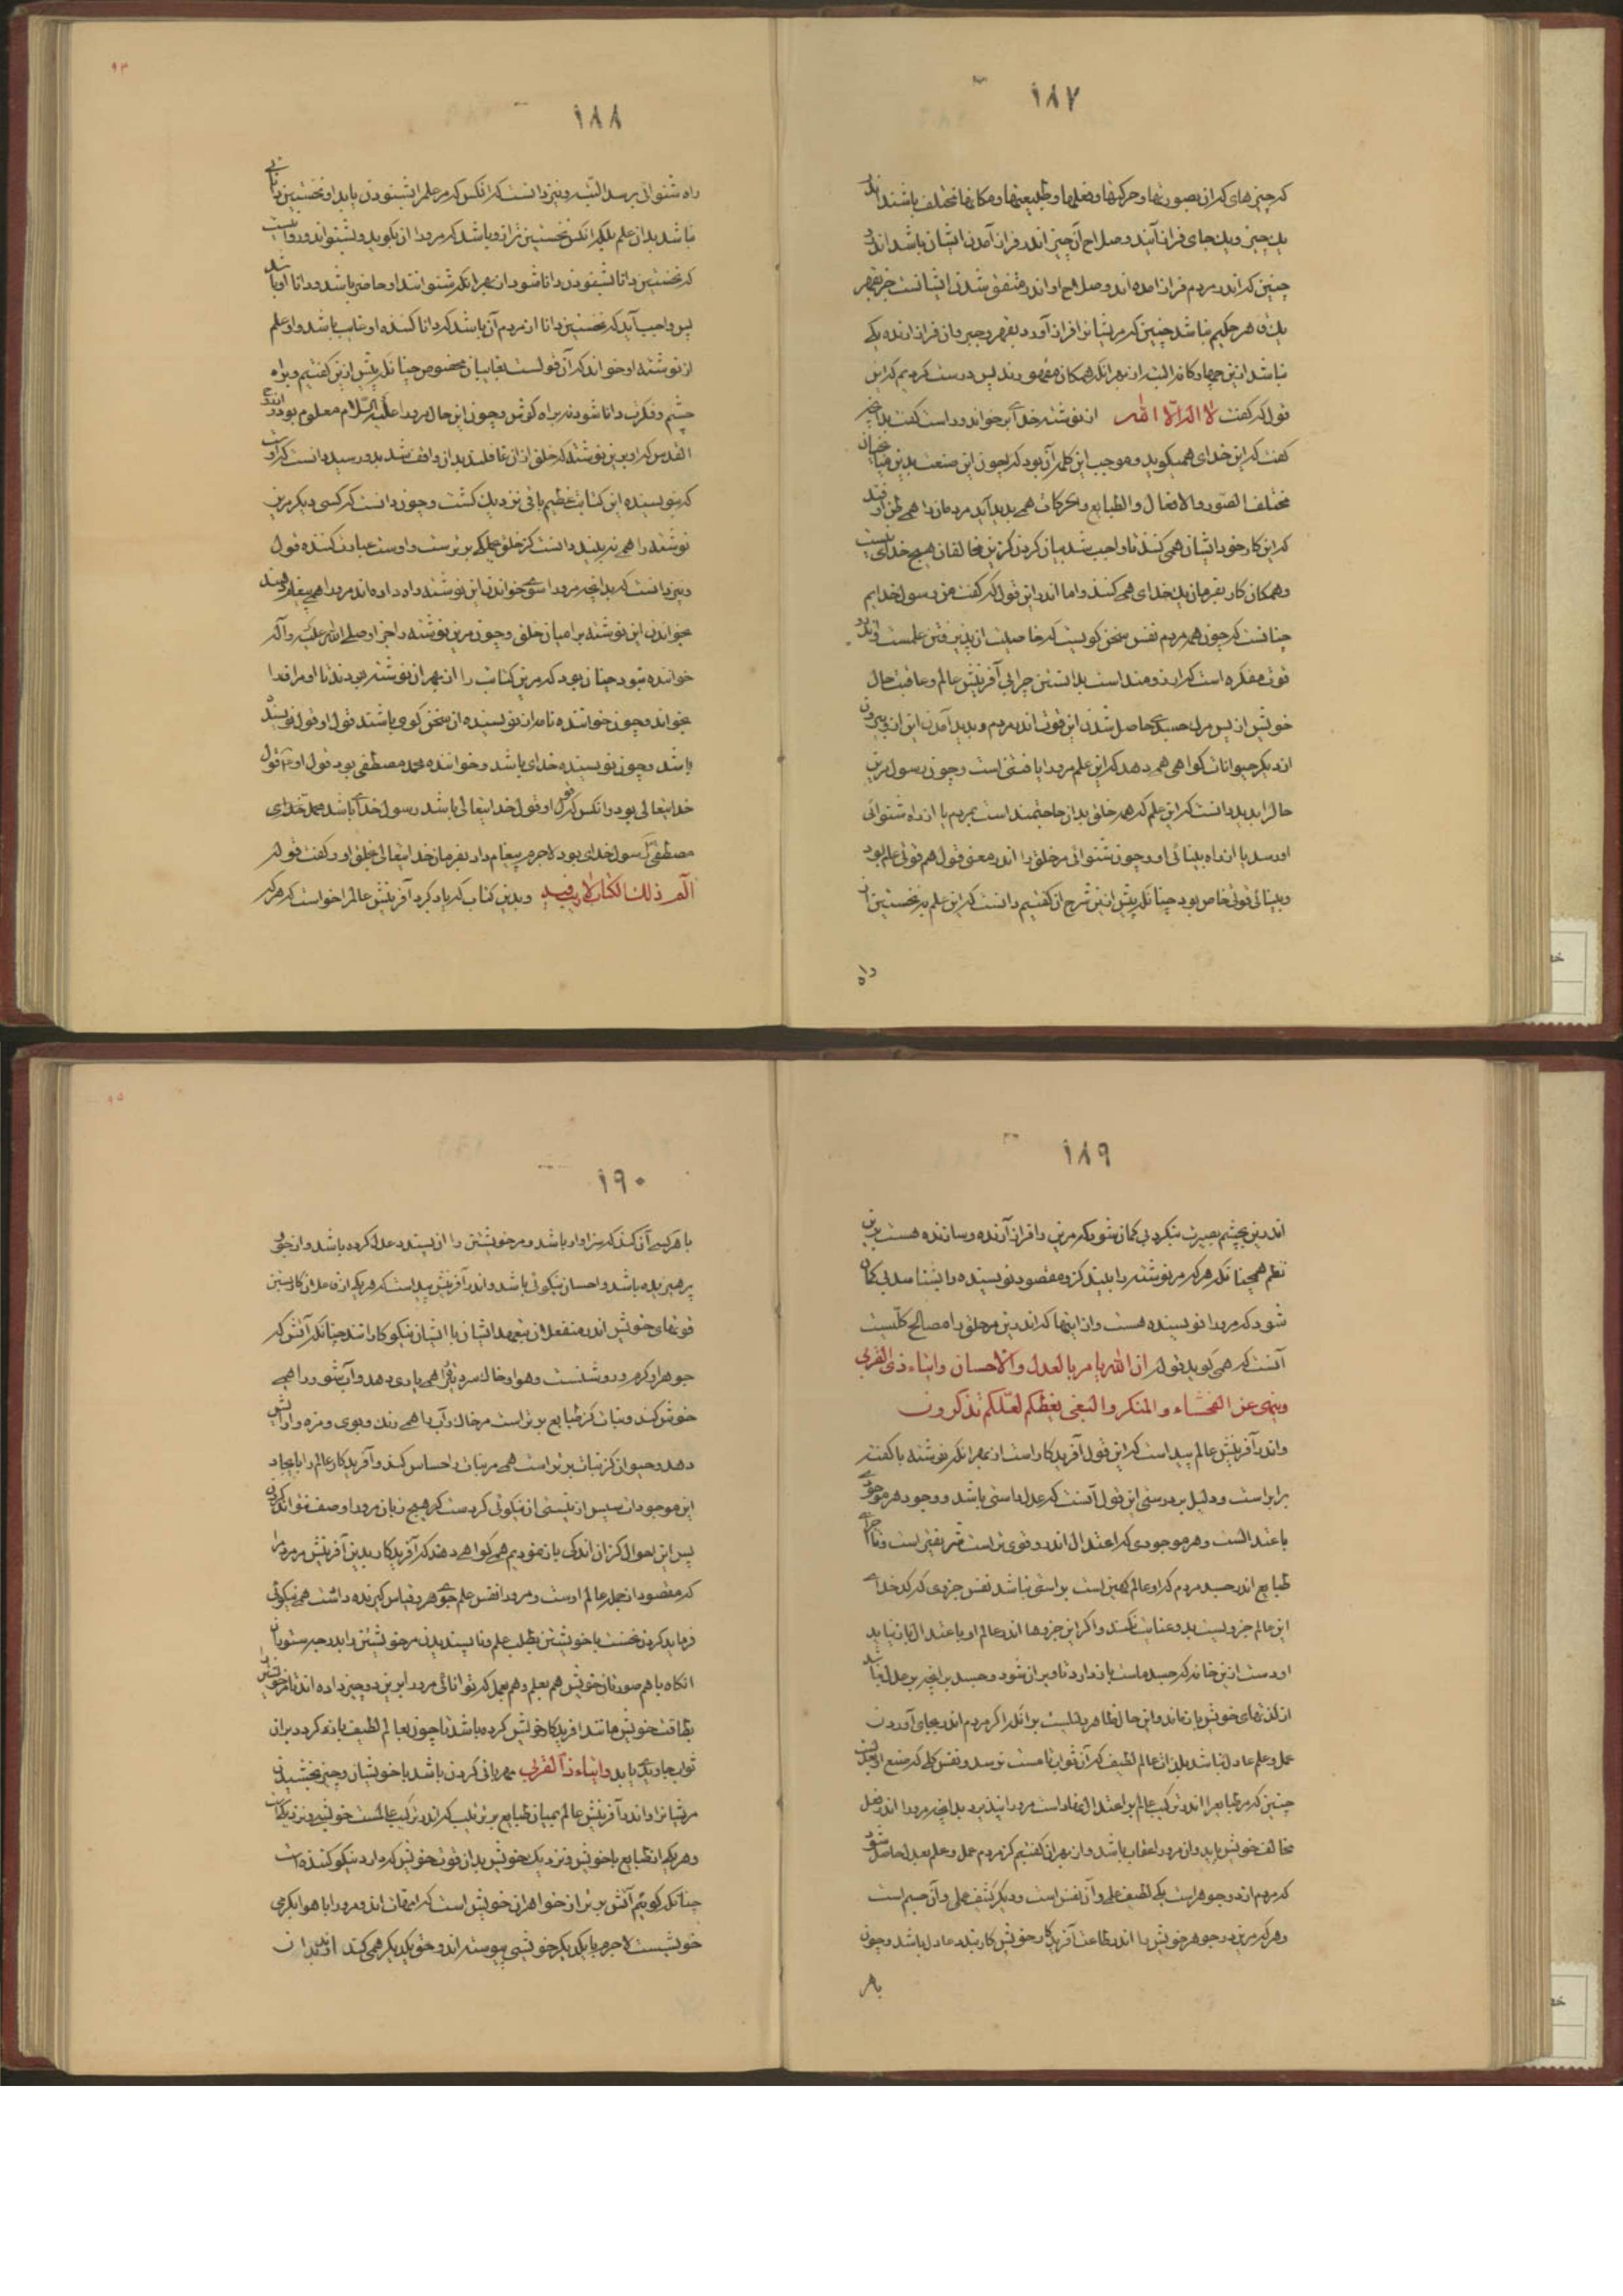 ۱۸۷
که چیزهای که آن بصورتها و حرکتها و فعلها و طبیعتها و مکانها مختلف باشند اندر
یک چیز و یک جای فراز آیند و صلاح آن چیز اندر فراز آمدن ایشان باشد اندرو
چنین که اندر مردم فراز امده اند و صلاح او اندر متفق شدن ایشانست جز بقهر
یک قاهر حکیم نباشد چنین که مریشانرا فراز آورد بقهر و جبر و این فراز ارنده یکی
نباشد ازین جهار کانه البته از بهر انکه همکان مقهورند پس درست کردیم که این
قول که کفت لا اله الا الله از نوشته خدای برخواند و راست کفت بدانچه
کفت که این خدای همیکوید و موجب این کلمه آن بود که بجون این صنعت بدین میانجیان
مختلف الصور و الافعال و الطبایع و الحرکات همی بدید آید مردمان را همی ظن اوفتد
که این کار خود ایشان همی کنند تا واجب شد بیان کردن کزین مخالفان هیچ خدای نیست
و همکان کار بفرمان یک خدای همی کنند و اما اندر این قول که کفت من رسول خدایم
چنانست که چون همه مردم نفس سخن کویست که خاصیت ان پذیرفتن علمست و بدو
قوت مفکره است که ارزومند است بدانستن چرایی آفرینش عالم و عاقبت حال
خویش از پس مرک جسدی حاصل شدن این قوت اندر مردم و بدید آمدن این ارزو بیرون
از دیکر حیوانات کواهی همی دهد که این علم مرورا یافتنی است و چون رسول مرین
حال را بدید دانست که این علم که همه خلق بدان حاجتمند است بمردم یا از راه شنوائی
اورسد یا از راه بینائی او و چون شنوائی مر خلق را اندر معنی قول هم قوتی عام بود
و بینائی قوتی خاص بود چنانکه پیش ازین شرح ان کفتیم دانست که این علم نه نخستین از
راه
۱۸۸
راه شنوائی برسد البته و نیز دانست که انکس که مر علم را بشنودن یابد او نخستین دانائی
نباشد بدان علم بلکه انکس نخستین ازو باشد که مرورا ان بکوید و بشنواند و روا نیست
که نخستین دانا بشنودن دانا شود از بهر انکه شنوانند او حاضر باشد و دانا او باشد
پس واجب آید که نخستین دانا از مردم آن باشد که دانا کننده او غایب باشد و او علم
از نوشته او خواند که آن قولست بغایبان مخصوص چنانکه پیش ازین کفتیم و براه
چشم و فکرت دانا شود نه براه کوش و چون این حال مرورا علیه السلام معلوم بود
القدس که او برین نوشته که خلق ازان غافلند بدان واقف شد بدو رسید دانست که اوست
که نویسنده این کتابت عظیم باقی نزدیک کشت و چون دانست که کسی دیکر مرین
نوشته را همی نه بیند دانست کز خلق جملکی برترست و اوست عبارت کننده قول
و نیز دانست که بدانچه مرورا سوی خواندن این نوشته راه داده اند مرورا همی پیغام دهند
بخواندن این نوشته بر امیان خلق و چون مرین نوشته را جز او صلی الله علیه و آله
خواننده نبود چنان بود که مرین کتابت را از بهر ان نوشته بودند تا او مراقدا
بخواند و چون خواننده نامه از نویسنده ان سخن کوی باشند قول او قول نویسنده
باشد و چون نویسنده خدای باشد و خواننده محمد مصطفی بود قول او قول
خدایتعالی بود و انکس که قول او قول خدایتعالی باشد رسول خدای باشد محمد خدای
مصطفی رسول خدای بود لاجرم پیغام داد بفرمان خدایتعالی بخلق او و کفت قوله
الم ذلک الکتاب لا ریب فیه و بدین کتاب که یاد کرد آفرینش عالم را خواست که هر که
۱۸۹
اندرین بچشم بصیرت بنکرد بی کمان شود که مرین را فراز آرنده و سازنده هست برین
نظم همچنانکه هر که مر نوشته را بیند کزو مقصود نویسنده را بشناسد بی کمان
شود که مرورا نویسنده هست و از اینها که اندر دین مر خلق را مصالح کلیست
آنست که همی کوید قوله ان الله یامر بالعدل والاحسان وایتاء ذی القربی
وینهی عن الفحشاء والمنکر والبغی یعظکم لعلکم تذکرون
و اندر آفرینش عالم پیداست که این قول آفریدکار است از بهر انکه نوشته با کفته
برابر است و دلیل بر درستی این قول آنست که عدل راستی باشد و وجود هر موجودی
باعتدالست و هر موجودی که اعتدال اندرو قوی تر است شریفتر است و تا اجزای
طبایع اندر جسد مردم که او عالم کهین است براستی نباشد نفس جزوی که کدخدای
این عالم جزویست بدو عنایت نکند و اکر این جزوها اندر عالم او باعتدال باز نیاید
او دست ازین خانه که جسد ماست باز دارد تا ویران شود و جسد بدانچه بر عدل نباشد
از لذتهای خویش باز ماند و این حال ظاهر دلیلیست برانکه اکر مردم اندر بجای آوردن
عمل و علم عادل نباشد بلذات عالم لطیف که آن ثوابها هست نرسد و نفس کلی که صنع او بعدل
چنین که مر طبایع را اندر ترکیب عالم براعتدال نهاد است مرورا نپذیرد بدانچه مرورا اندر فعل
مخالف خویش یابد و ان مرورا عقاب باشد و از بهر ان کفتیم کز مردم عمل و علم بعدل حاصل شود
که مردم از دو جوهر است یکی لطیف علمی و آن نفس است و دیکر کثیف عملی و آن جسم است
و هر که مرین دو جوهر خویش را اندر طاعت آفریدکار خویش کار بندد عادل باشد و چون
باهر
۱۹۰
با هر کسی آن کند که سزاوار باشد و مر خویشتن را ان پسندد عدل کرده باشد و از جور
پرهیزیده باشد و احسان نیکوئی باشد و اندر آفرینش پیداست که هر یکی از فاعلان کار بستن
قوتهای خویش اندر منفعلان بتعهد ایشان با ایشان نیکو کارانند چنانکه آتش که
جوهر او کرم و روشنست و هوا و خاک سرد و تر را همی یاری دهد و آب شور را همی
خوش کند و نبات کز طبایع برتر است مر خاک و آب را همی رنک و بوی و مزه و ارایش
دهد و حیوان کز نبات برتر است همی مر نبات را حساس کند و آفریدکار عالم را بایجاد
این موجودات سپس از نیستی ان نیکوئی کردست که هیچ زبان مرورا وصف نتواند کردن
پس این احوال کزان اندکی باز نمودیم همی کواهی دهند که آفریدکار بدین آفرینش مر مردم را
که مقصود از جمله عالم اوست و مرورا نفس علم جوی و هر دو قیاس کیرنده داشت همی نیکوئی
فرماید کردن نخست با خویشتن بطلب علم و ناپسندیدن مر خویشتن را بدرجه ستوران
انکاه با هم صورتان خویش هم بعلم و هم بعمل که توانائی مرورا برین دو چیز داده اند تا مر خویشتن
بطاقت خویش مانند افریدکار خویش کرده باشد تا چون بعالم لطیف باز کردد بران
ثواب جاویدی یابد وایتاء ذا القربی مهربانی کردن باشد با خویشان و چیز بخشیدن
مریشانرا و اندر آفرینش عالم بمیان طبایع برترتیب که اندر ترکیب عالمست خویشی و نزدیکیست
و هر یکی از طبایع با خویش و نزدیک خویش بدان قوت خویش که دارد نیکو کننده است
چنانکه کوئیم آتش برتر از خواهران خویش است که امهات اند و مرورا با هوا بکرمی
خویشیست لاجرم با یکدیکر خویشی پیوسته اند و خویشی یکدیکر همی کنند